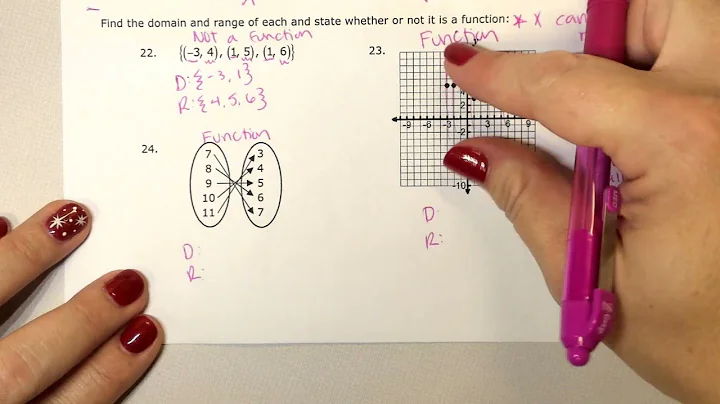 Find the domain and range of each and state whether or not it is a function: * X can
Not a Function
22. {(-3, 4), (1, 5), (1, 6)}
D: {-3, 1}
R: {4, 5, 6}
23. Function
-9 -6 -3 3 6 9
-2
-10
D:
R:
24. Function
7 3
8 4
9 5
10 6
11 7
D:
R: